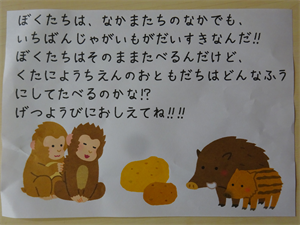 ぼくたちは、なかまたちのなかでも、
いちばんじゃがいもがだいすきなんだ!!
ぼくたちはそのままたべるんだけど、
くたにようちえんのおともだちはどんなふう
にしてたべるのかな!?
げつようびにおしえてね!!!!